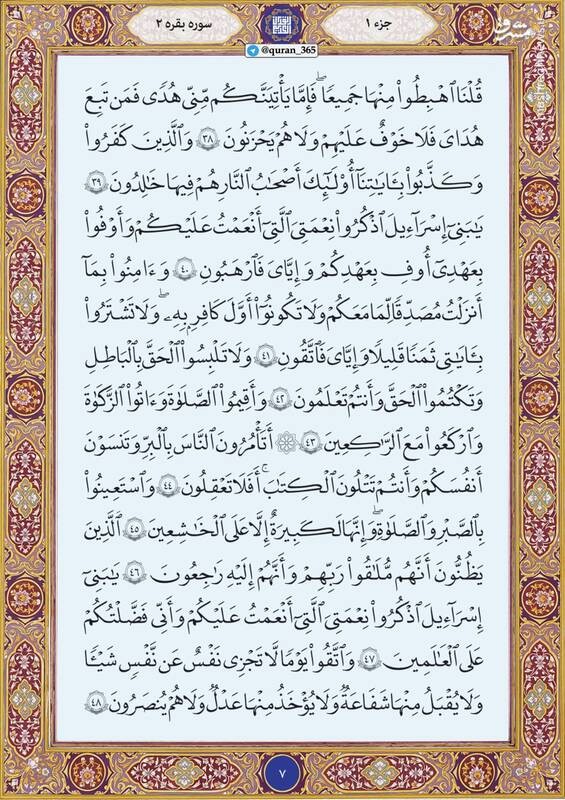 سوره بقره ۲
جزء ۱
@quran_365
مشرق
قُلْنَا ٱهْبِطُوا۟ مِنْهَا جَمِيعًا ۖ فَإِمَّا يَأْتِيَنَّكُم مِّنِّى هُدًى فَمَن تَبِعَ
هُدَاىَ فَلَا خَوْفٌ عَلَيْهِمْ وَلَا هُمْ يَحْزَنُونَ ٣٨ وَٱلَّذِينَ كَفَرُوا۟
وَكَذَّبُوا۟ بِـَٔايَـٰتِنَآ أُو۟لَـٰٓئِكَ أَصْحَـٰبُ ٱلنَّارِ هُمْ فِيهَا خَـٰلِدُونَ ٣٩
يَـٰبَنِىٓ إِسْرَٰٓءِيلَ ٱذْكُرُوا۟ نِعْمَتِىَ ٱلَّتِىٓ أَنْعَمْتُ عَلَيْكُمْ وَأَوْفُوا۟
بِعَهْدِىٓ أُوفِ بِعَهْدِكُمْ وَإِيَّـٰىَ فَٱرْهَبُونِ ٤٠ وَءَامِنُوا۟ بِمَآ
أَنزَلْتُ مُصَدِّقًا لِّمَا مَعَكُمْ وَلَا تَكُونُوٓا۟ أَوَّلَ كَافِرٍۭ بِهِۦ ۖ وَلَا تَشْتَرُوا۟
بِـَٔايَـٰتِى ثَمَنًا قَلِيلًا وَإِيَّـٰىَ فَٱتَّقُونِ ٤١ وَلَا تَلْبِسُوا۟ ٱلْحَقَّ بِٱلْبَـٰطِلِ
وَتَكْتُمُوا۟ ٱلْحَقَّ وَأَنتُمْ تَعْلَمُونَ ٤٢ وَأَقِيمُوا۟ ٱلصَّلَوٰةَ وَءَاتُوا۟ ٱلزَّكَوٰةَ
وَٱرْكَعُوا۟ مَعَ ٱلرَّٰكِعِينَ ٤٣ ۞ أَتَأْمُرُونَ ٱلنَّاسَ بِٱلْبِرِّ وَتَنسَوْنَ
أَنفُسَكُمْ وَأَنتُمْ تَتْلُونَ ٱلْكِتَـٰبَ ۚ أَفَلَا تَعْقِلُونَ ٤٤ وَٱسْتَعِينُوا۟
بِٱلصَّبْرِ وَٱلصَّلَوٰةِ ۚ وَإِنَّهَا لَكَبِيرَةٌ إِلَّا عَلَى ٱلْخَـٰشِعِينَ ٤٥ ٱلَّذِينَ
يَظُنُّونَ أَنَّهُم مُّلَـٰقُوا۟ رَبِّهِمْ وَأَنَّهُمْ إِلَيْهِ رَٰجِعُونَ ٤٦ يَـٰبَنِىٓ
إِسْرَٰٓءِيلَ ٱذْكُرُوا۟ نِعْمَتِىَ ٱلَّتِىٓ أَنْعَمْتُ عَلَيْكُمْ وَأَنِّى فَضَّلْتُكُمْ
عَلَى ٱلْعَـٰلَمِينَ ٤٧ وَٱتَّقُوا۟ يَوْمًا لَّا تَجْزِى نَفْسٌ عَن نَّفْسٍ شَيْـًٔا
وَلَا يُقْبَلُ مِنْهَا شَفَـٰعَةٌ وَلَا يُؤْخَذُ مِنْهَا عَدْلٌ وَلَا هُمْ يُنصَرُونَ ٤٨
۷